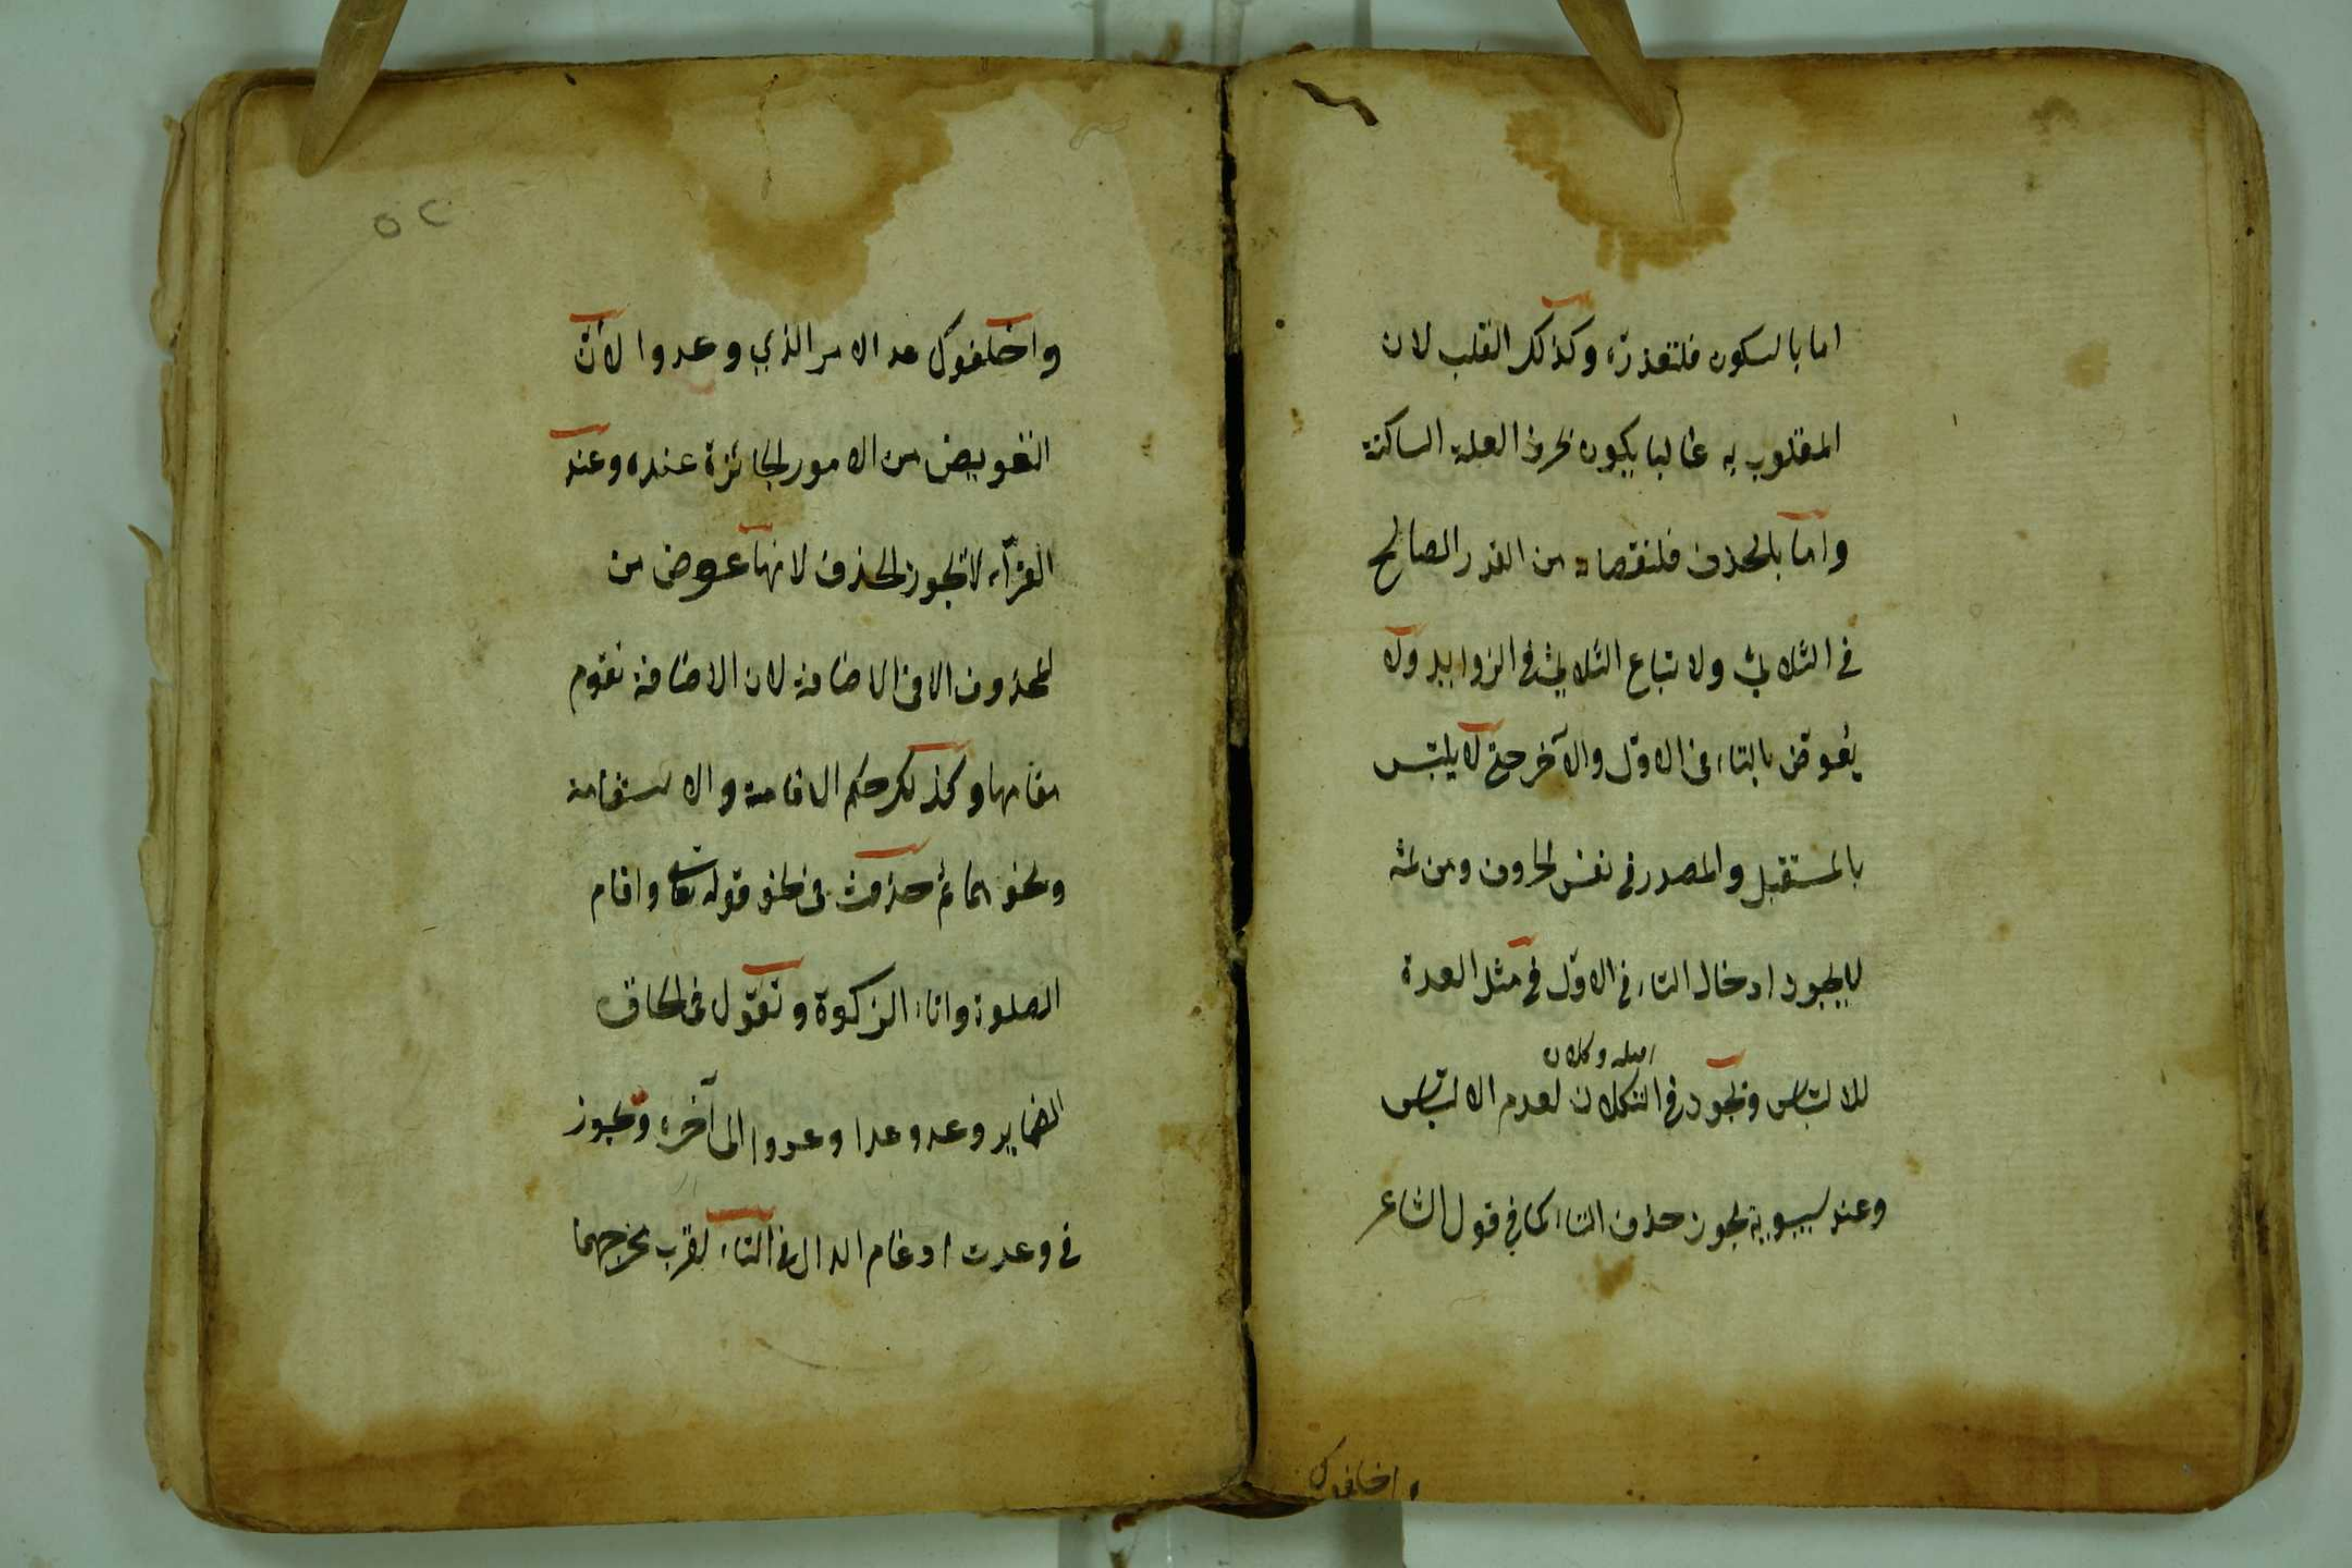 اما بالسكون فلتعذره وكذلك القلب لان
المقلوب به غالبا يكون بحرف العلة الساكنة
واما بالحذف فلنقصانه من القدر الصالح
في الثلاثي ولاتباع الثلاثي في الزوايد ولا
يعوض بالتاء في الاول والآخر حتى لا يلتبس
بالمستقبل والمصدر في نفس الحروف ومن ثمه
لا يجوز ادخال التاء في الاول في مثل العدة
اصله وكلان
للالتباس ويجوز في التكلان لعدم الالتباس
وعند سيبويه يجوز حذف التاء كما في قول الشاعر
واخلفوك
واخلفوك عد الامر الذي وعدوا لأن
التعويض من الامور الجائزة عنده وعند
الفرّاء لا يجوز الحذف لانها عوض من
المحذوف الا في الاضافة لان الاضافة تقوم
مقامها وكذلك حكم الاقامة والاستقامة
ونحوهما ثم حذفت في نحو قوله تعالى واقام
الصلوة وايتاء الزكوة وتقول في الحاق
الضماير وعد وعدا وعدوا الى آخره ويجوز
في وعدت ادغام الدال في التاء لقرب مخرجهما
٥٢